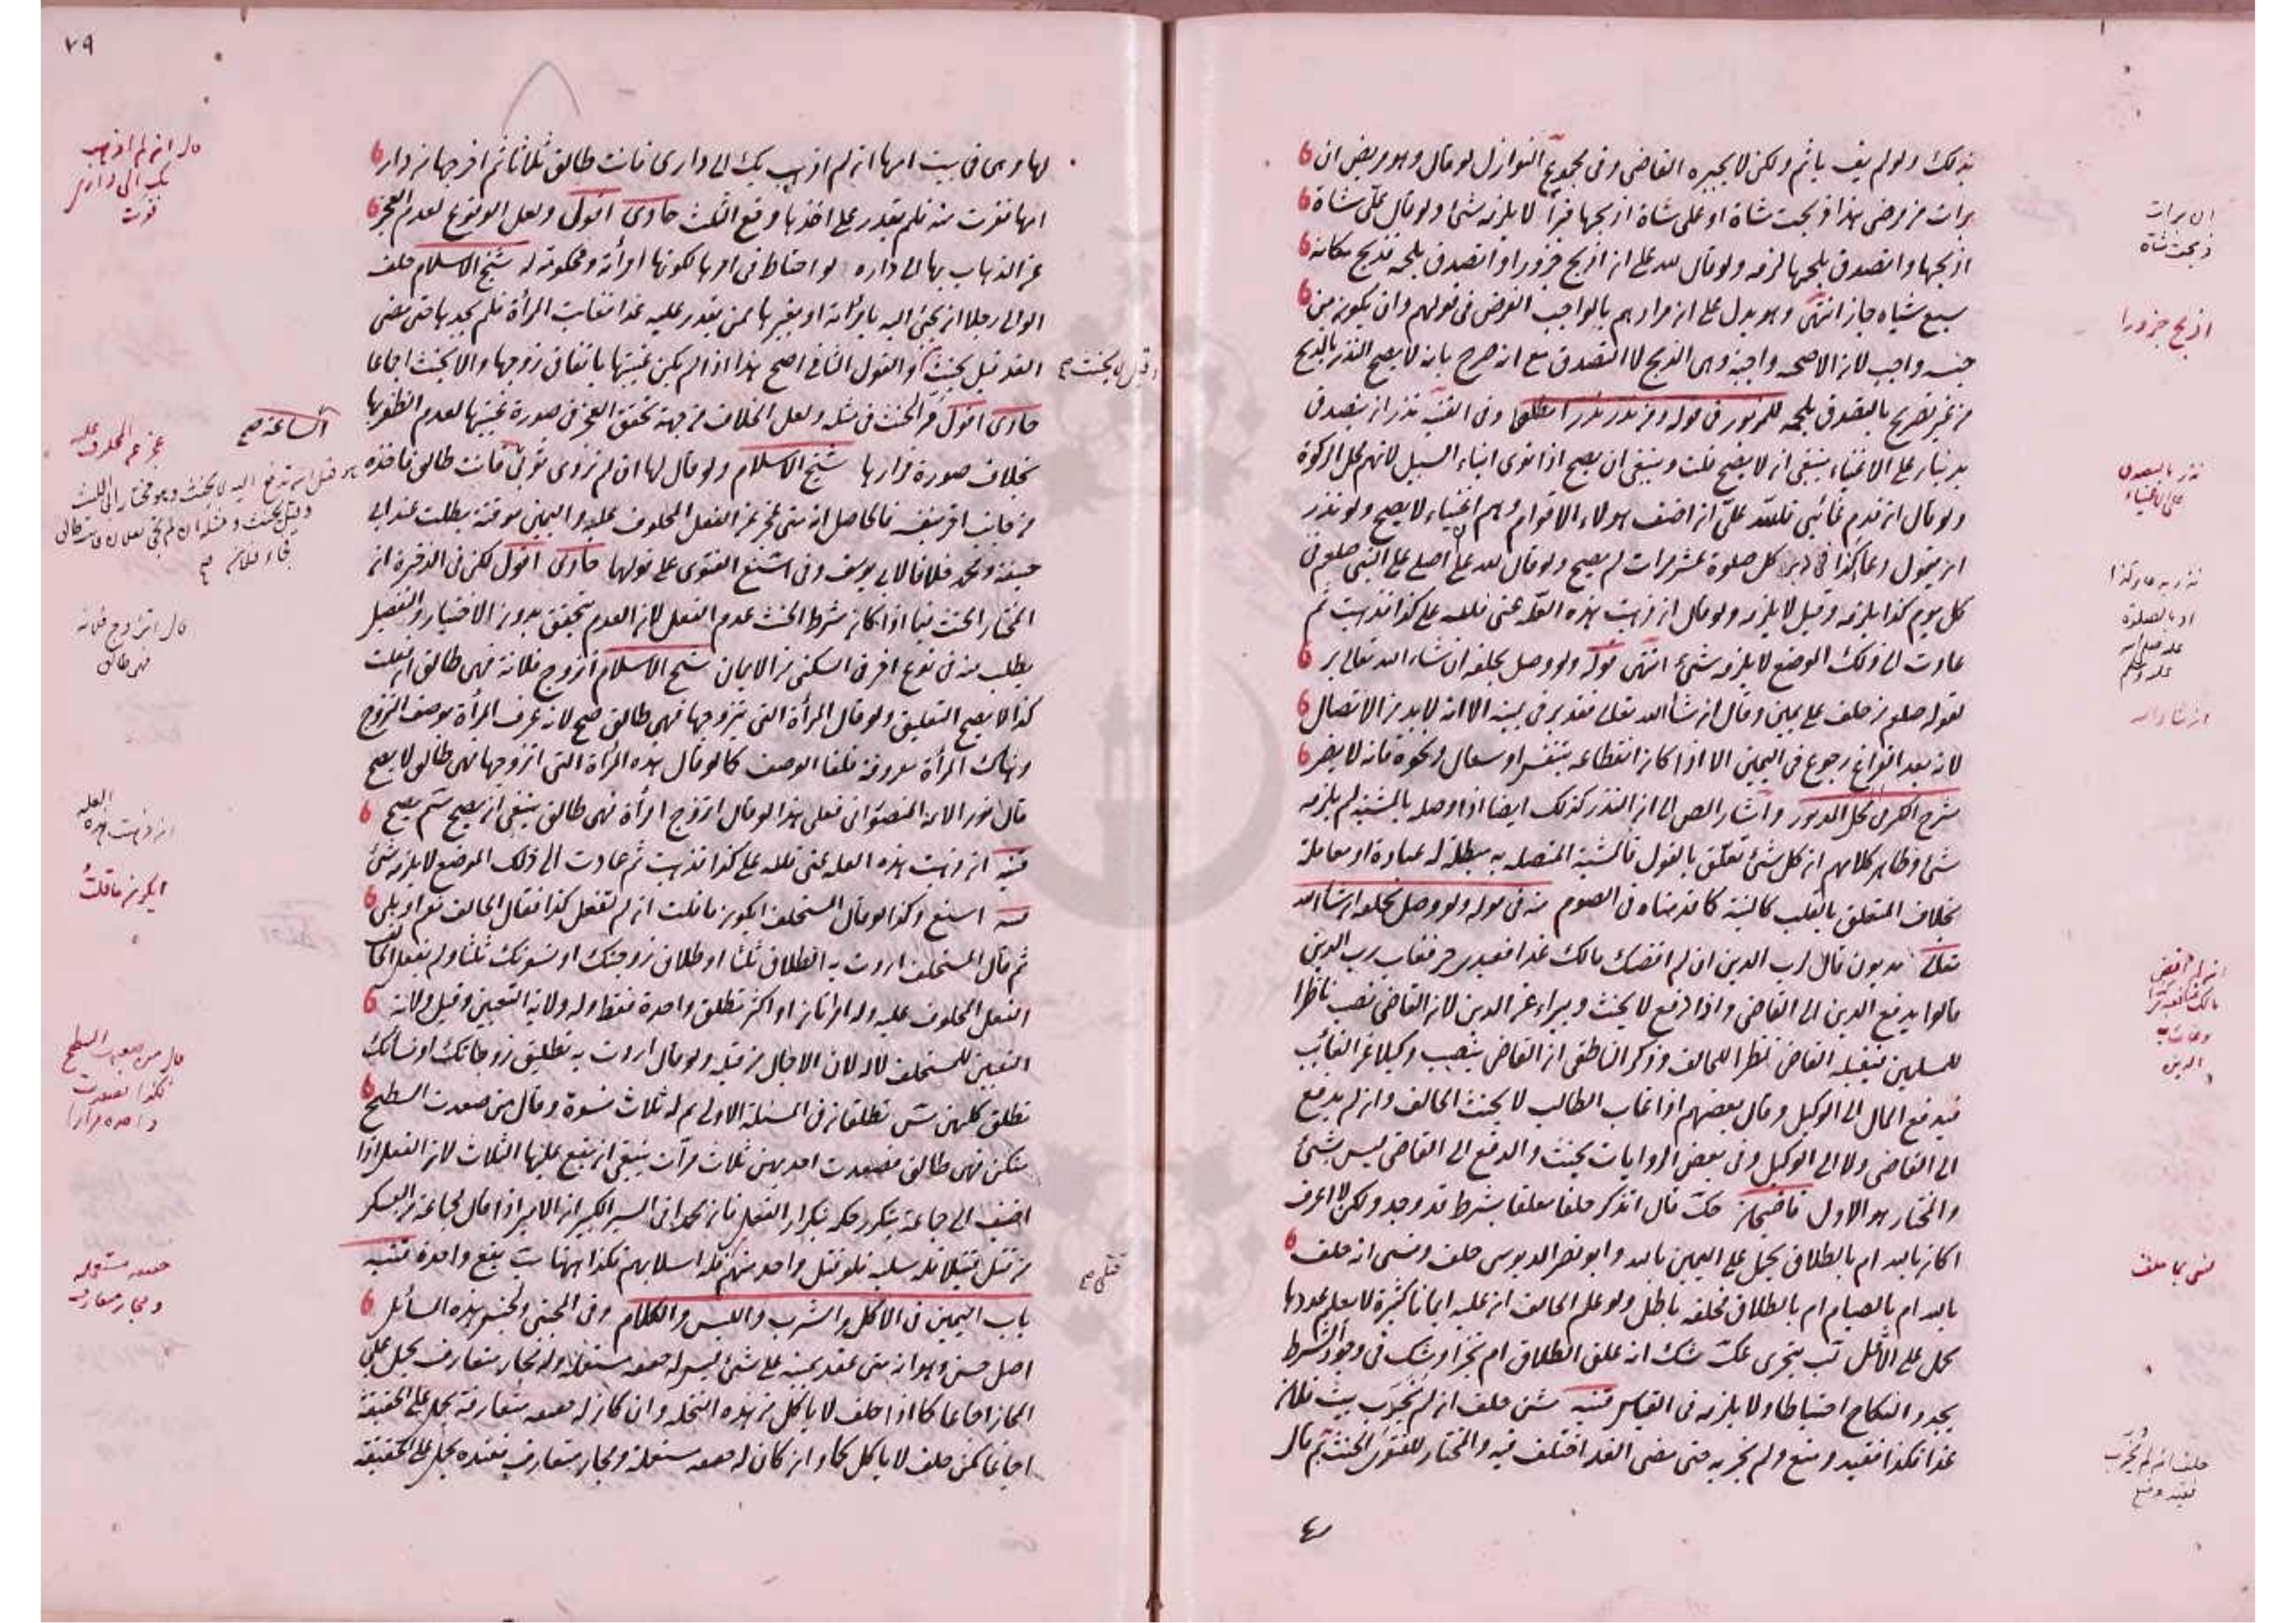 بذلك ولو لم يف يأثم ولكن لا يجبره القاضي وفي مجموع النوازل لو قال وهو مريض ان
برات من مرضي هذا ذبحت شاة او علي شاة اذبحها فبرأ لا يلزمه شئ ولو قال علي شاة
اذبحها واتصدق بلحمها لزمه ولو قال لله علي ان اذبح جزورا واتصدق بلحمه فذبح مكانه
سبع شياه جاز انتهى وهو يدل على ان مرادهم بالواجب الفرض في قولهم وان يكون من
جنسه واجب لان الاضحية واجبة وهي الذبح لا التصدق مع انه صرح بانه لا يصح النذر بالذبح
من غير تصريح بالتصدق بلحمه للمزبور في قوله ومن نذر نذرا مطلقا وفي القنية نذر ان يتصدق
بدينار على الاغنياء ينبغي ان لا يصح قلت وينبغي ان يصح اذا نوى ابناء السبيل لانهم محل الزكوة
ولو قال ان قدم غائبي فلله علي ان اضيف هولاء الاقوام وهم اغنياء لا يصح ولو نذر
ان يقول دعاء كذا في دبر كل صلوة عشر مرات لم يصح ولو قال لله علي ان اصلي على النبي صلعم في
كل يوم كذا يلزمه وقيل لا يلزمه ولو قال ان ذهبت هذه العلة عني فلله علي كذا فذهبت ثم
عادت الى ذلك الموضع لا يلزمه شئ انتهى قوله ولو وصل بحلفه ان شاء الله تعالى بر
لقوله صلعم من حلف على يمين وقال ان شاء الله تعالى فقد بر في يمينه الا انه لا بد من الاتصال
لانه بعد الفراغ رجوع في اليمين الا اذا كان انقطاعه بتنفس او سعال ونحوه فانه لا يضر
شرح الكنز في محل المزبور واشار المص الى ان النذر كذلك ايضا اذا وصله بالمشية لم يلزمه
شئ وظاهر كلامهم ان كل شئ تعلق بالقول فالمشية المتصلة به مبطلة له عبادة او معاملة
بخلاف المتعلق بالقلب كالنية كما قدمناه في الصوم منه في قوله ولو وصل بحلفه ان شاء الله
تعالى مديون قال لرب الدين ان لم اقضك مالك غدا فعبدي حر فغاب رب الدين
قالوا يدفع الدين الى القاضي واذا دفع لا يحنث ويبراء عن الدين لان القاضي نصب ناظرا
للمسلمين فيقبله القاضي نظرا للحالف وذكر الناطفي ان القاضي ينصب وكيلا عن الغائب
فيدفع المال الى الوكيل وقال بعضهم اذا غاب الطالب لا يحنث الحالف وان لم يدفع
الى القاضي ولا الى الوكيل وفي بعض الروايات يحنث والدفع الى القاضي ليس بشئ
والمختار هو الاول قاضيخان حك قال اتذكر حلفا معلقا بشرط قد وجد ولكن لا اعرف
اكان بالله ام بالطلاق يحمل على اليمين بالله وابو نصر الدبوسي حلف ونسي انه حلف
بالله ام بالصيام ام بالطلاق فحلفه باطل ولو علم الحالف ان عليه ايمانا كثيرة لا يعلم عددها
يحمل على الاقل تب يتحرى عك شك انه علق الطلاق ام نجز او شك في وجود الشرط
يجدد النكاح احتياطا ولا يلزمه في القياس قنيه شن حلف ان لم نخرب بيت فلان
غدا فكذا فقيد ومنع ولم يخربه حتى مضى الغد اختلف فيه والمختار للفتوى الحنث بم قال
ان برات
ذبحت شاة
اذبح جزورا
نذر بالتصدق
على الاغنياء
نذر بدعاء كذا
او بالصلوة
عليه صلى الله
عليه وسلم
ان شاء الله
ان لم اقض
مالك غدا فعبدي حر
وغاب رب
الدين
نسي بما حلف
حلف ان لم نخرب
فقيد ومنع
٧٩
لها وهي في بيت امها ان لم اذهب بك الى داري فانت طالق ثلاثا ثم اخرجها من دار
امها ففرت منه فلم يقدر على اخذها وقع الثلث حاوي اقول ولعل الوقوع لعدم العجز
عن الذهاب بها الى داره لو احتاط في امرها لكونها امرأة ومحكومة له شيخ الاسلام حلف
الوالي رجلا ان يجئ اليه بامرأته او بغيرها ممن يقدر عليه غدا فغابت المرأة فلم يجدها حتى مضى
الغد قيل يحنث والقول الثاني اصح هذا اذا لم يكن غيبتها باتفاق زوجها والا يحنث اجماعا
وقيل لا يحنث صح
حاوي اقول مر الحنث في مثله ولعل الخلاف من جهة تحقق العجز في صورة غيبتها لعدم الظفر بها
بخلاف صورة فرارها شيخ الاسلام ولو قال لها ان لم تردي ثوبي الساعة صح فانت طالق فاخذه
من جانب اخر بنفسه فالحاصل انه متى عجز عن الفعل المحلوف عليه واليمين موقتة بطلت عند ابي
حنيفة ومحمد خلافا لابي يوسف وفي اشنع الفتوى على قولهما حاوي اقول لكن في الذخيرة ان
المختار الحنث فيما اذا كان شرط الحنث عدم الفعل لان العدم يتحقق بدون الاختيار والتفصيل
يطلب منه في نوع اخر في السكنى من الايمان شيخ الاسلام اتزوج فلانة فهي طالق ان فعلت
كذا لا يصح التعليق ولو قال المرأة التي يتزوجها فهي طالق صح لانه عرف المرأة بوصف التزوج
وهناك المرأة معروفة فلغا الوصف كما لو قال هذه المرأة التي اتزوجها فهي طالق لا يصح
قال نور الائمة المنصوراني فعلى هذا لو قال اتزوج امرأة فهي طالق ينبغي ان يصح سم يصح
قنيه ان ذهبت هذه العلة عني فلله علي كذا فذهبت ثم عادت الى ذلك الموضع لا يلزمه شئ
قنيه اسنع وكذا لو قال المستحلف ايكون ما قلت ان لم تفعل كذا فقال الحالف نعم او بلى
ثم قال المستحلف اردت به الطلاق ثلثا او طلاق زوجتك او نسوتك ثلثا ولم يفعل الحالف
الفعل المحلوف عليه وله امراتان او اكثر تطلق واحدة فقط وله ولاية التعيين وقيل ولاية
التعيين للمستحلف لا له لان الاجمال من قبله ولو قال اردت به تطليق زوجاتك او نسائك
تطلق كلهن تتن تطلقان في المسئلة الاولى بم له ثلاث نسوة وقال من صعدت السطح
منكن فهي طالق فصعدت احديهن ثلاث مرات ينبغي ان يقع عليها الثلاث لان الفعل اذا
اضيف الى جماعة يتكرر حكمه بتكرار الفعل فان محمدا في السير الكبير ان الامير اذا قال لجماعة من العسكر
من قتل قتيلا فله سلبه فلو قتل واحد منهم قتلى صح فله اسلابهم فكذا ههنا يت يقع واحدة قنيه
باب اليمين في الاكل والشرب واللبس والكلام وفي المجتبى ولجنس هذه المسائل
اصل حسن وهو انه متى عقد يمينه على شئ ليس له حقيقة مستعملة وله مجاز متعارف يحمل على
المجاز اجماعا كما اذا حلف لا ياكل من هذه النخلة وان كان له حقيقة متعارفة يحمل على الحقيقة
اجماعا كمن حلف لا ياكل لحما وان كان له حقيقة مستعملة ومجاز متعارف فعنده يحمل على الحقيقة
قال ان لم اذهب
بك الى داري
ففرت
عجز عن المحلوف عليه
قال اتزوج فلانة
فهي طالق
ان ذهبت هذه العلة
ايكون ما قلت
قال من صعدت السطح
فكذا فصعدت
واحدة مرارا
حقيقة مستعملة
ومجاز متعارف